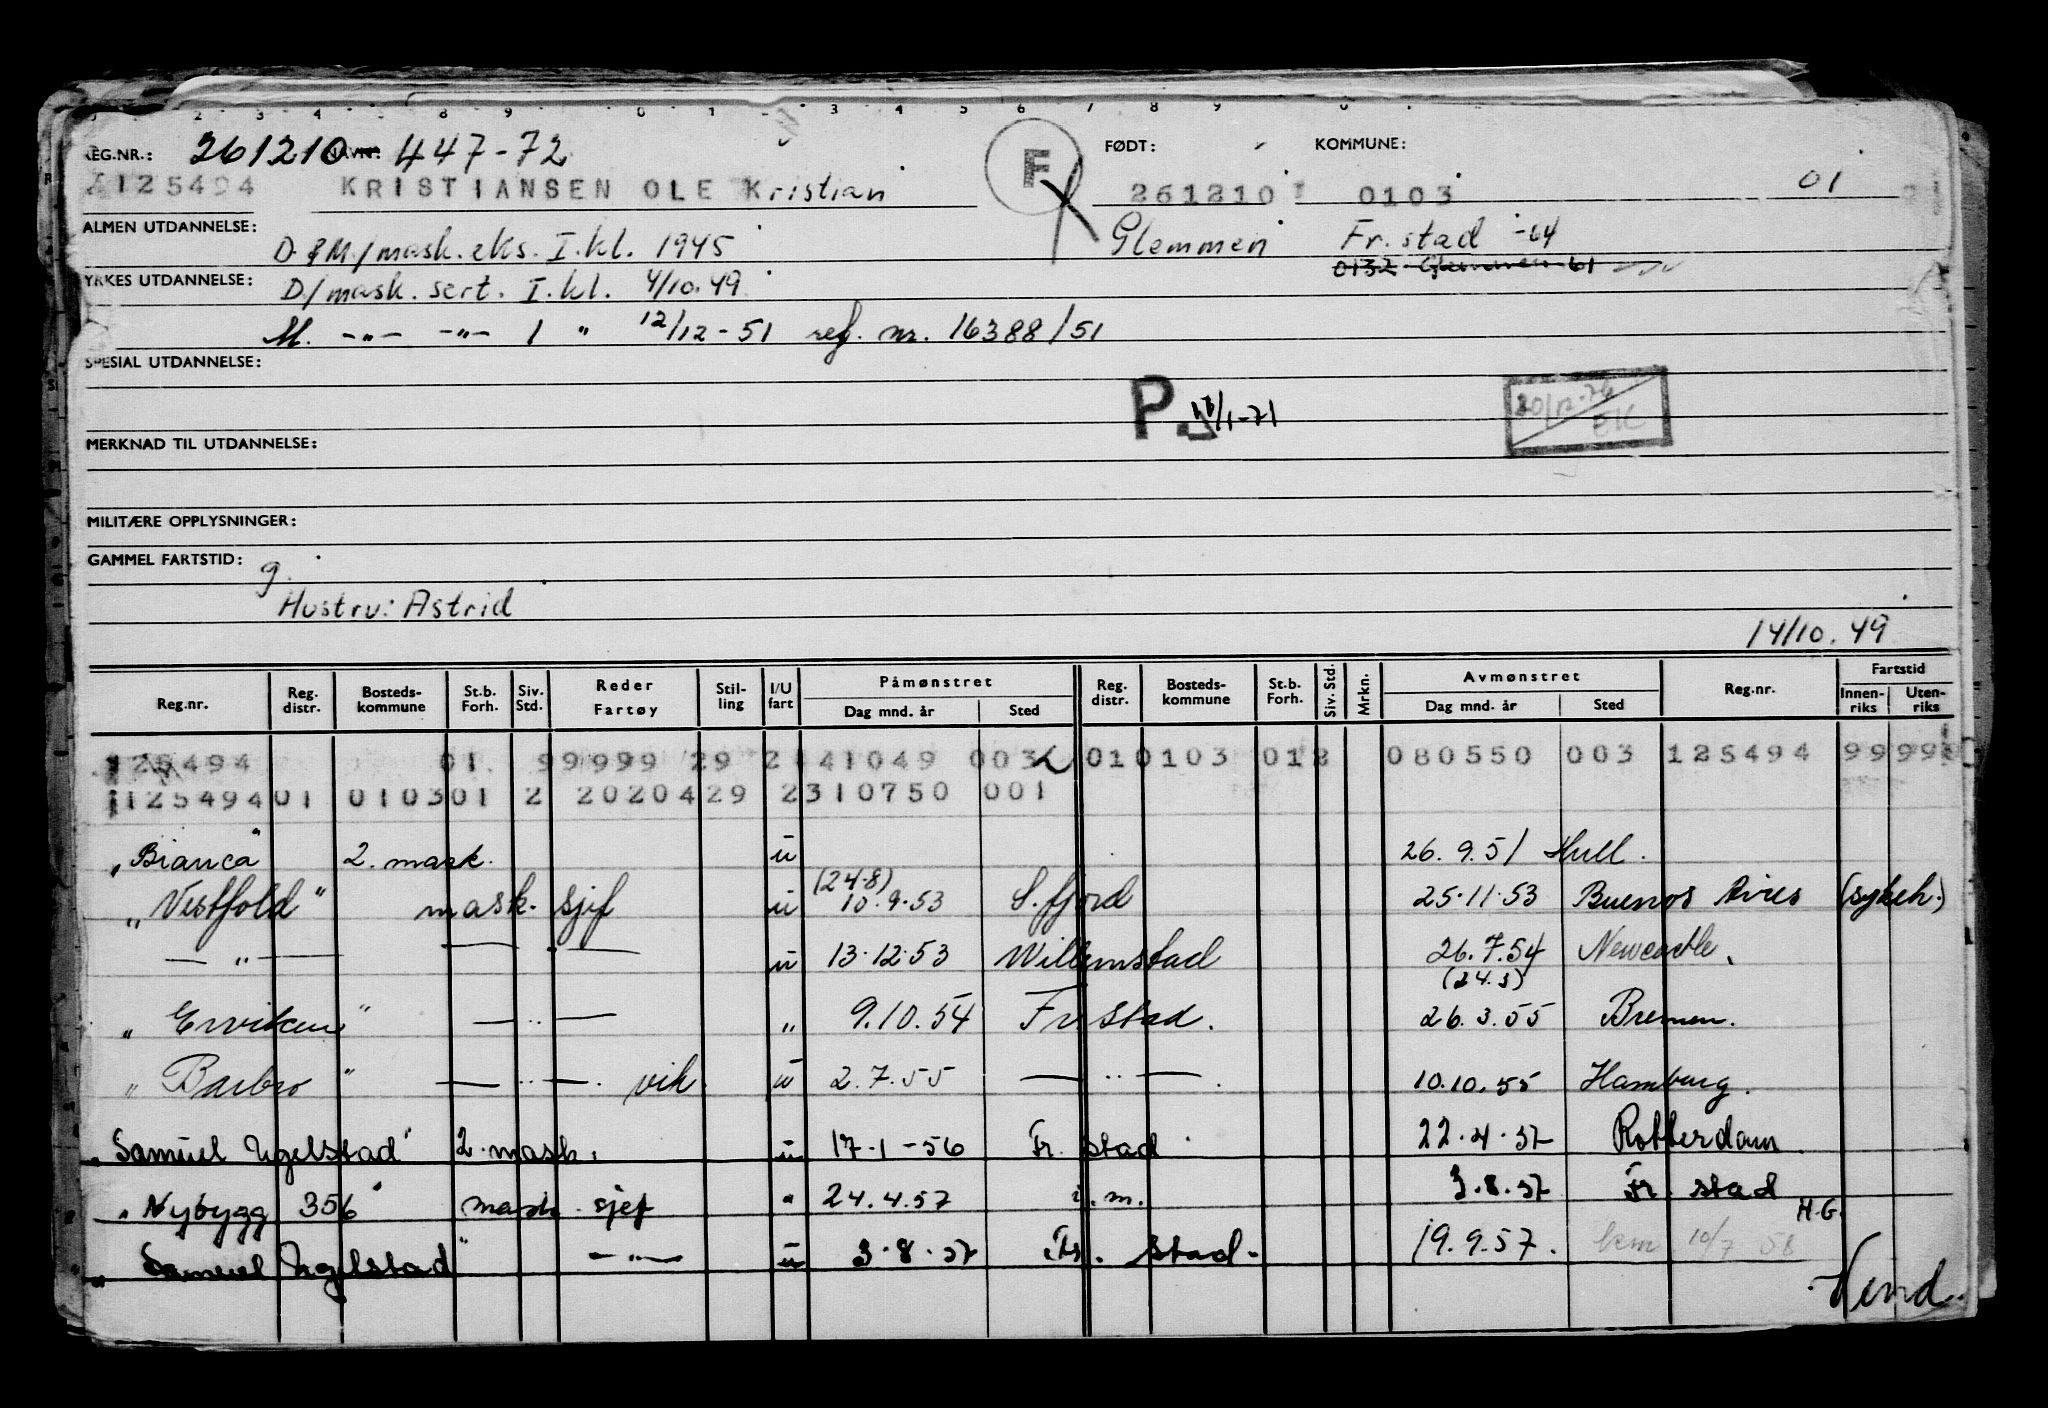 REG.NR.: 261210 NAVN: 447-72 F FØDT: KOMMUNE:
A125494 KRISTIANSEN OLE Kristian 261210 0103 01
ALMEN UTDANNELSE: D. & M./mask. eks. I. kl. 1945 Glemmen Fr. stad -64
0132 Glemmen 61
YRKES UTDANNELSE: D/mask. sert. I. kl. 4/10.49
M. -"- -"- 1 " 12/12-51 ref. nr. 16388/51
SPESIAL UTDANNELSE:
P /1-71 20/12-76 EK
MERKNAD TIL UTDANNELSE:
MILITÆRE OPPLYSNINGER:
GAMMEL FARTSTID: g.
Hustru: Astrid
14/10.49
Reg.nr. Reg. distr. Bosteds-kommune St.b. Forh. Siv. Std. Reder Fartøy Stil-ling I/U fart Påmønstret Dag mnd. år Sted Reg. distr. Bosteds-kommune St.b. Forh. Siv. Std. Mrkn. Avmønstret Dag mnd. år Sted Reg.nr. Fartstid Innen-riks Uten-riks
125494 01 99999 29 2 141049 003 010103 012 080550 003 125494 99999
125494 01 010301 2 20204 29 2 310750 001
"Bianca" 2. mask. u 26.9.51 Hull.
"Vestfold" mask. sjef u (24.8) 10.9.53 S. fjord 25.11.53 Buenos Aires (sykeh.)
— " — — " — u 13.12.53 Willemstad 26.7.54 Newcastle.
(24.3)
"Erviken" — " — " 9.10.54 Fr stad. 26.3.55 Bremen.
"Barbro" — " —. vik. u 2.7.55 — " —. 10.10.55 Hamburg.
"Samuel Ugelstad" 2. mask. u 17-1-56 Fr. stad 22.4.57 Rotterdam
"Nybygg 356" mask. sjef " 24.4.57 i.m. 3.8.57 Fr. stad
H.G.
"Samuel Ugelstad" — " — u 3.8.57 Fr. stad. 19.9.57. hem 10/7 58
Vend.